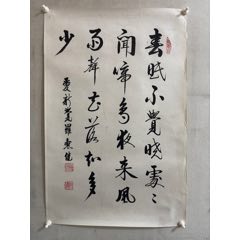 春眠不覺曉處々
聞啼鳥夜来風
雨聲花落知多
少
愛新覺羅